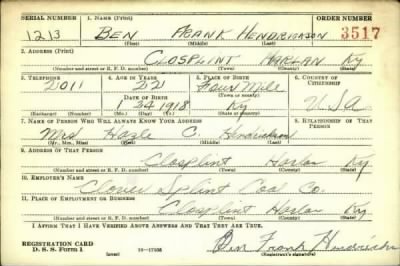 SERIAL NUMBER 1. NAME (Print) ORDER NUMBER
1213 BEN FRANK HENDRICKSON 3517
(First) (Middle) (Last)
2. ADDRESS (Print)
CLOSPLINT HARLAN Ky
(Number and street or R. F. D. number) (Town) (County) (State)
3. TELEPHONE 4. AGE IN YEARS 5. PLACE OF BIRTH 6. COUNTRY OF CITIZENSHIP
2011 22 Four Mile
DATE OF BIRTH (Town or county)
1 24 1918 Ky U.S.A
(Exchange) (Number) (Mo.) (Day) (Yr.) (State or country)
7. NAME OF PERSON WHO WILL ALWAYS KNOW YOUR ADDRESS 8. RELATIONSHIP OF THAT PERSON
Mrs Hazle C. Hendrickson
(Mr., Mrs., Miss) (First) (Middle) (Last)
9. ADDRESS OF THAT PERSON
Closplint Harlan Ky
(Number and street or R. F. D. number) (Town) (County) (State)
10. EMPLOYER'S NAME
Clover Splint Coal Co.
11. PLACE OF EMPLOYMENT OR BUSINESS
Closplint Harlan Ky
(Number and street or R. F. D. number) (Town) (County) (State)
I AFFIRM THAT I HAVE VERIFIED ABOVE ANSWERS AND THAT THEY ARE TRUE.
REGISTRATION CARD
D. S. S. Form 1 (over) Ben Frank Hendrickson
(Registrant's signature)